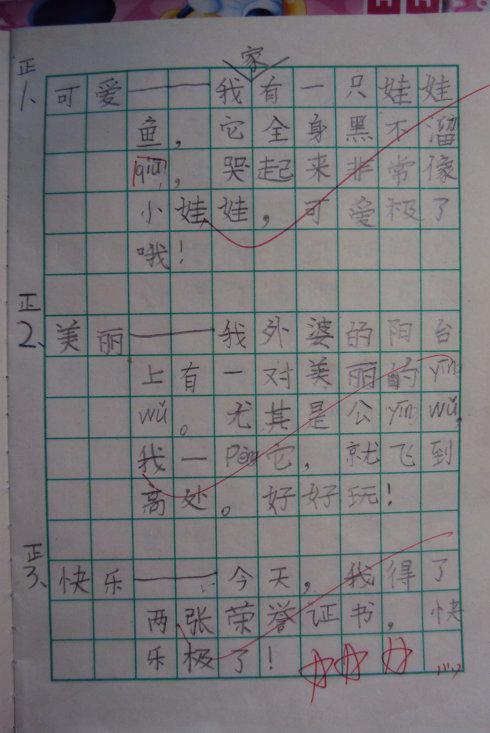 家
正
1、可爱——我有一只娃娃
鱼，它全身黑不溜
qiū，哭起来非常像
小娃娃，可爱极了
哦！
正
2、美丽——我外婆的阳台
上有一对美丽的yīng
wǔ。尤其是公yīng wǔ，
我一pèng它，就飞到
高处。好好玩！
正
3、快乐——今天，我得了
两张荣誉证书，快
乐极了！